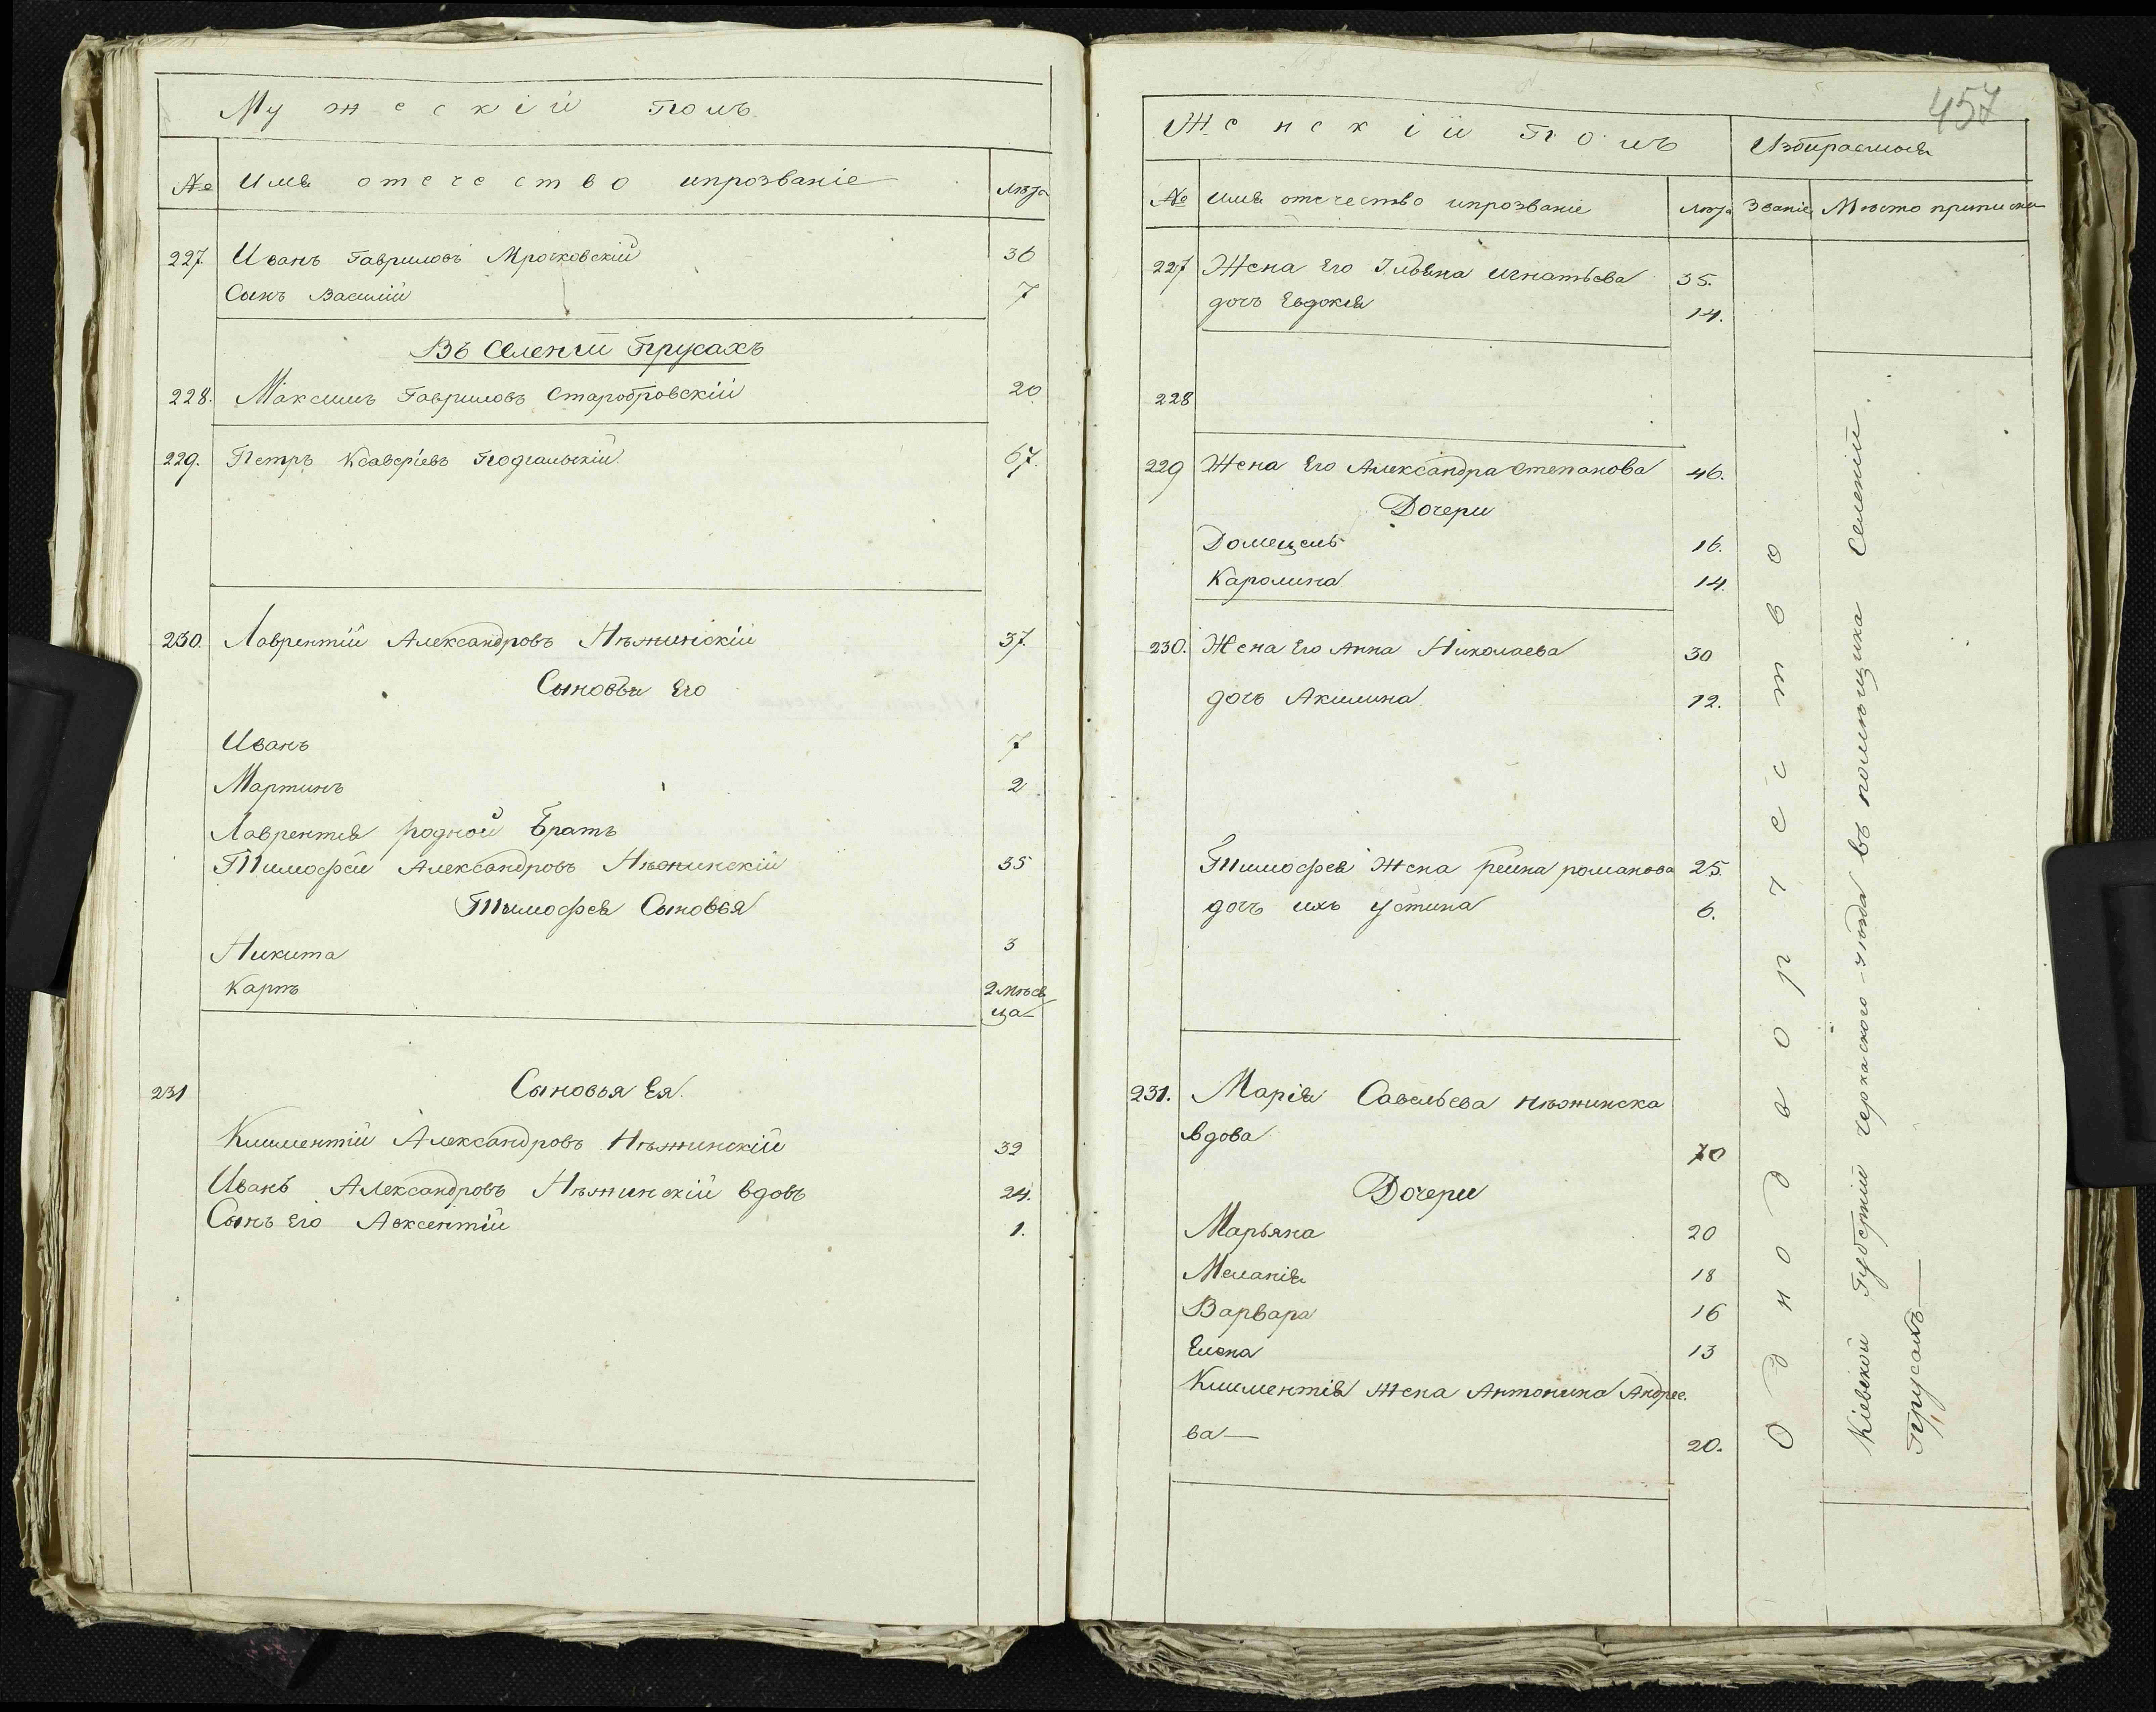 Мужескій полъ
№ Имя отечество ипрозваніе лѣта
227. Иванъ Гавриловъ Мрочковскій 36
Сынъ Василій 7
Въ Селеніи Трусахъ
228. Максимъ Гавриловъ Старобровскій 20
229. Петръ Ксаверіевъ Подгальскій 67.
230. Лаврентій Александровъ Нѣжинскій 37.
Сыновья Его
Иванъ 7
Мартинъ 2
Лаврентія родной братъ
Тимофей Александровъ Нѣжинскій 35
Тимофея Сыновья
Никита 3
Карпъ 2 мѣся
ца
231 Сыновья Ея.
Климентій Александровъ Нѣжинскій 32
Иванъ Александровъ Нѣжинскій вдовъ 24.
Сынъ Его Авксентій 1.
457
Женскій полъ Избираемыя
№ Имя отечество ипрозваніе лѣта Званіе Мѣсто приписки
227 Жена Его Ульяна Игнатьева 35.
дочь Евдокія 14.
228
229 Жена Его Александра Степанова 46.
Дочери
Домецель 16.
Каролина 14.
230. Жена Его Анна Николаева 30
дочь Акилина 12.
Тимофея Жена реина романова 25.
дочь ихъ Устина 6.
231. Марія Савельева Нѣжинска
вдова 70
Дочери
Марьяна 20
Меланія 18
Варвара 16
Елена 13
Климентія Жена Антонина Андрее.
ва 20.
Однодворчество
Кіевской Губерніи черкаского уѣзда въ помѣщика Селеніи
Трусахъ